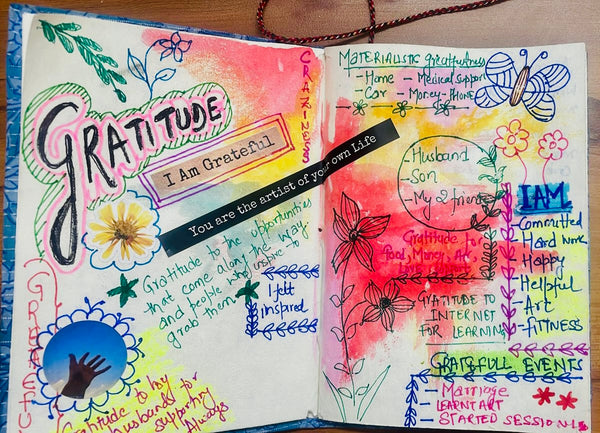 GRATITUDE
I Am Grateful
You are the artist of your own Life
CRAZINESS
Gratitude to the opportunities
that come along the way
and people who inspire to
grab them
I felt
inspired
GRATEFU
Gratitude to my
husband for
supporting
Always
MATERIALISTIC greatfulness
- Home - Medical support
- Car - Money - PHONE
- Husband
- Son
- My 2 friends
Gratitude for
food, Money, Art
GRATITUDE TO
INTERNET
FOR LEARNING
I AM
- Committed
- Hard Work
- Happy
- Helpful
- Art
- FITNESS
GRATEFULL EVENTS
- Marriage
- LEARNT ART
- STARTED SESSIONS